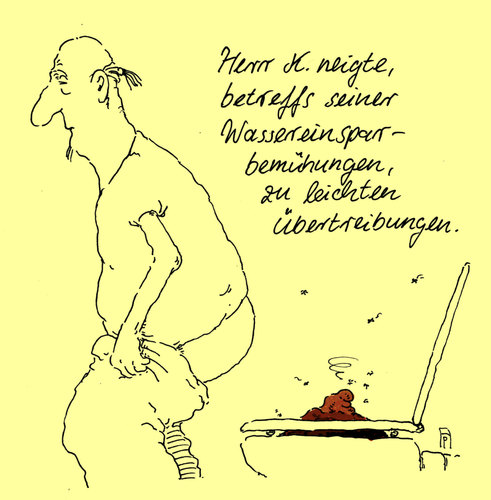 Herr K. neigte,
betreffs seiner
Wassereinspar-
bemühungen,
zu leichten
Übertreibungen.
P